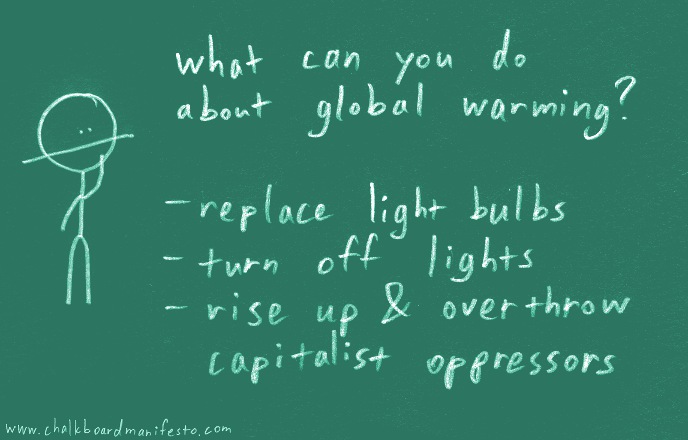 what can you do
about global warming?
- replace light bulbs
- turn off lights
- rise up & overthrow
capitalist oppressors
www.chalkboardmanifesto.com